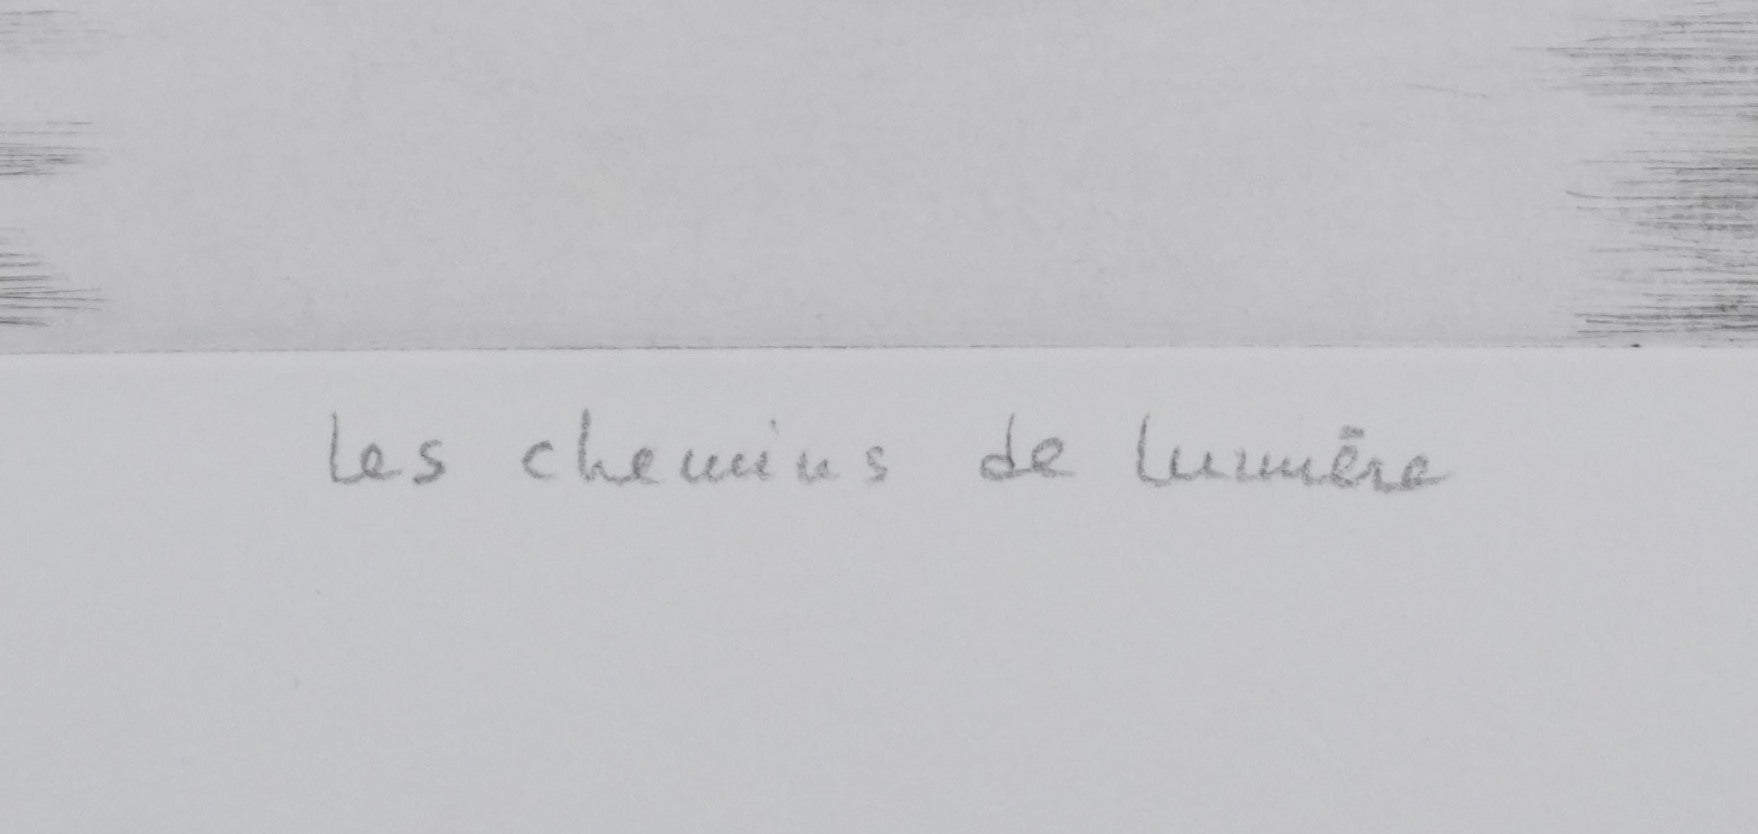 les chemins de lumière